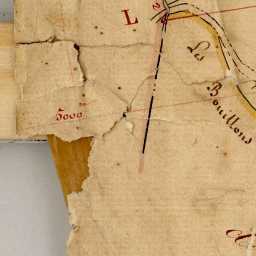 L
Les
Bouillons
5000